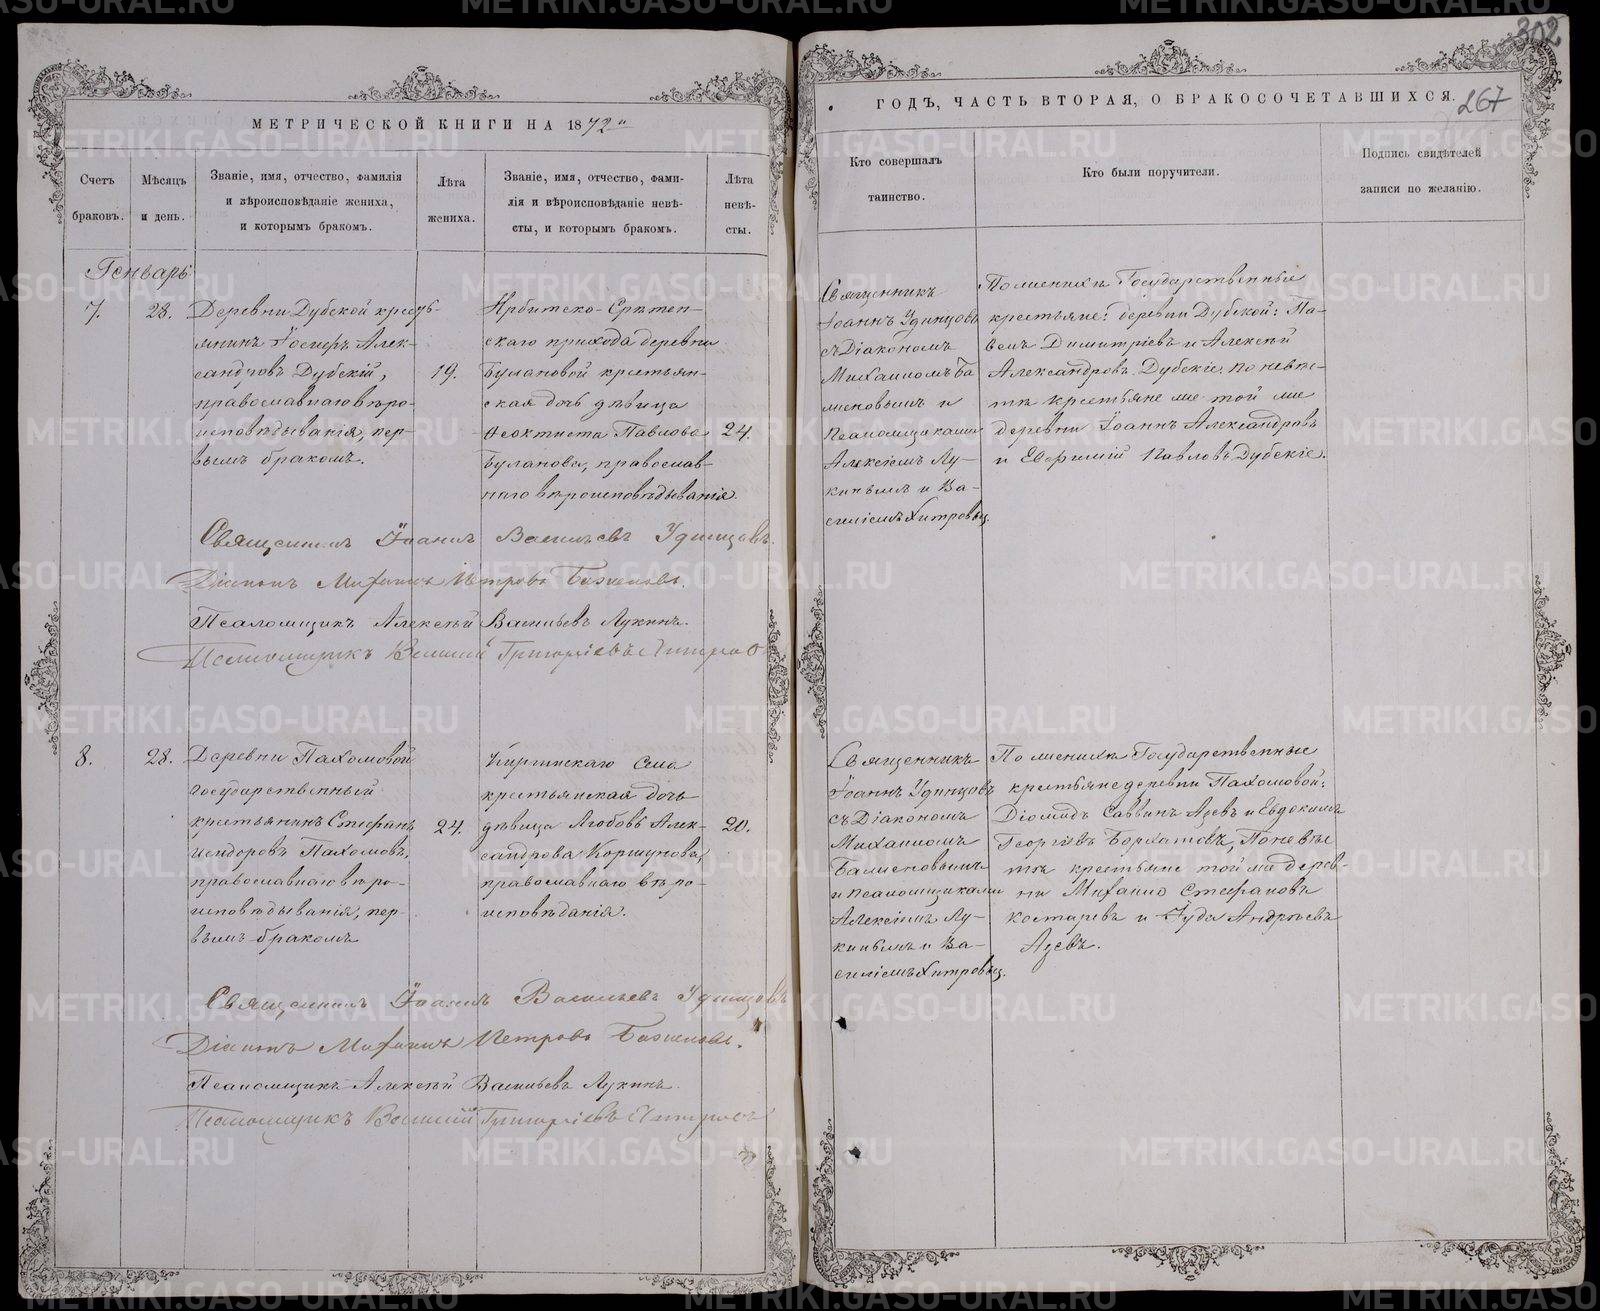 302
МЕТРИЧЕСКОЙ КНИГИ НА 1872
ГОДЪ, ЧАСТЬ ВТОРАЯ, О БРАКОСОЧЕТАВШИХСЯ.
267
Счетъ
браковъ.
Мѣсяцъ
и день.
Званіе, имя, отчество, фамилія
и вѣроисповѣданіе жениха,
и которымъ бракомъ.
Лѣта
жениха.
Званіе, имя, отчество, фами-
лія и вѣроисповѣданіе невѣ-
сты, и которымъ бракомъ.
Лѣта
невѣ-
сты.
Кто совершалъ
таинство.
Кто были поручители.
Подпись свидѣтелей
записи по желанію.
Генварь
7.
28.
Деревни Дубской кресть-
янинъ Іосифъ Алек-
сандровъ Дубскій,
православнаго вѣро-
исповѣдыванія, пер-
вымъ бракомъ.
19.
Ирбитско-Срѣтен-
скаго прихода деревни
Булановой крестьян-
ская дочь дѣвица
Ѳеоктиста Павлова
Буланова, православ-
наго вѣроисповѣдыванія.
24.
Священникъ
Іоаннъ Удинцовъ
съ Діакономъ
Михаиломъ Ба
женовымъ и
Псаломщиками
Алексіемъ Лу-
кинымъ и Ва-
силіемъ Хитровым.
По женихѣ Государственные
крестьяне: деревни Дубской: Па-
велъ Димитріевъ и Алексѣй
Александровъ Дубскіе, по невѣс-
тѣ крестьяне же той же
деревни Іоаннъ Александровъ
и Евфимій Павловъ Дубскіе.
Священникъ Іоаннъ Васильевъ Удинцовъ.
Діаконъ Михаилъ Петровъ Баженовъ.
Псаломщикъ Алексѣй Васильевъ Лукинъ.
Псаломщикъ Василій Григоріевъ Хитровъ
8.
28.
Деревни Пахомовой
государственный
крестьянинъ Стефанъ
Исидоровъ Пахомовъ,
православнаго вѣро-
исповѣдыванія, пер-
вымъ бракомъ
24.
Киргинскаго села
крестьянская дочь
дѣвица Любовь Алек-
сандрова Коршунова,
православнаго вѣро-
исповѣданія.
20.
Священникъ
Іоаннъ Удинцовъ
съ Діакономъ
Михаиломъ
Баженовымъ
и Псаломщиками
Алексіемъ Лу-
кинымъ и Ва-
силіемъ Хитровым.
По женихѣ Государственные
крестьяне деревни Пахомовой:
Діомидъ Саввинъ Азевъ и Евдокимъ
Георгіевъ Бархатовъ, По невѣс
тѣ крестьяне той же дерев-
ни Михаилъ Стефановъ
Костаревъ и Іуда Андреевъ
Азевъ.
Священникъ Іоаннъ Васильевъ Удинцовъ
Діаконъ Михаилъ Петровъ Баженовъ.
Псаломщикъ Алексѣй Васильевъ Лукинъ.
Псаломщикъ Василій Григоріевъ Хитровъ
METRIKI.GASO-URAL.RU